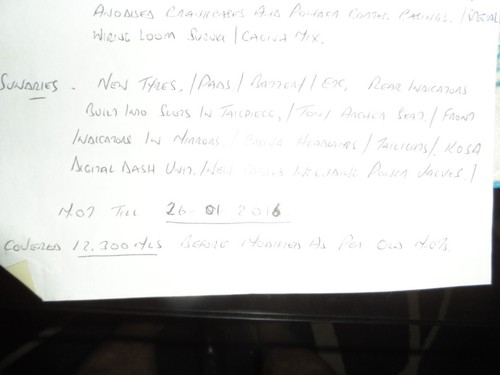 ANODISED CRANKCASES AND POWDER COATED CASINGS. / SPECIAL
WIRING LOOM SUZUKI / CAGIVA MIX.
SUNDRIES. NEW TYRES. / PADS / BATTERY / ETC, REAR INDICATORS
BUILT INTO SLOTS IN TAILPIECE, / TONY ARCHER SEAT. / FRONT
INDICATORS IN MIRRORS. / CAGIVA HEADLIGHTS / TAILLIGHTS /. KOSO
DIGITAL DASH UNIT. / NEW CABLES INCLUDING POWER VALVES. /
M.O.T TILL 26 01 2016
COVERED 12,300 MLS BEFORE MODIFIED AS PER OLD M.O.T'S.